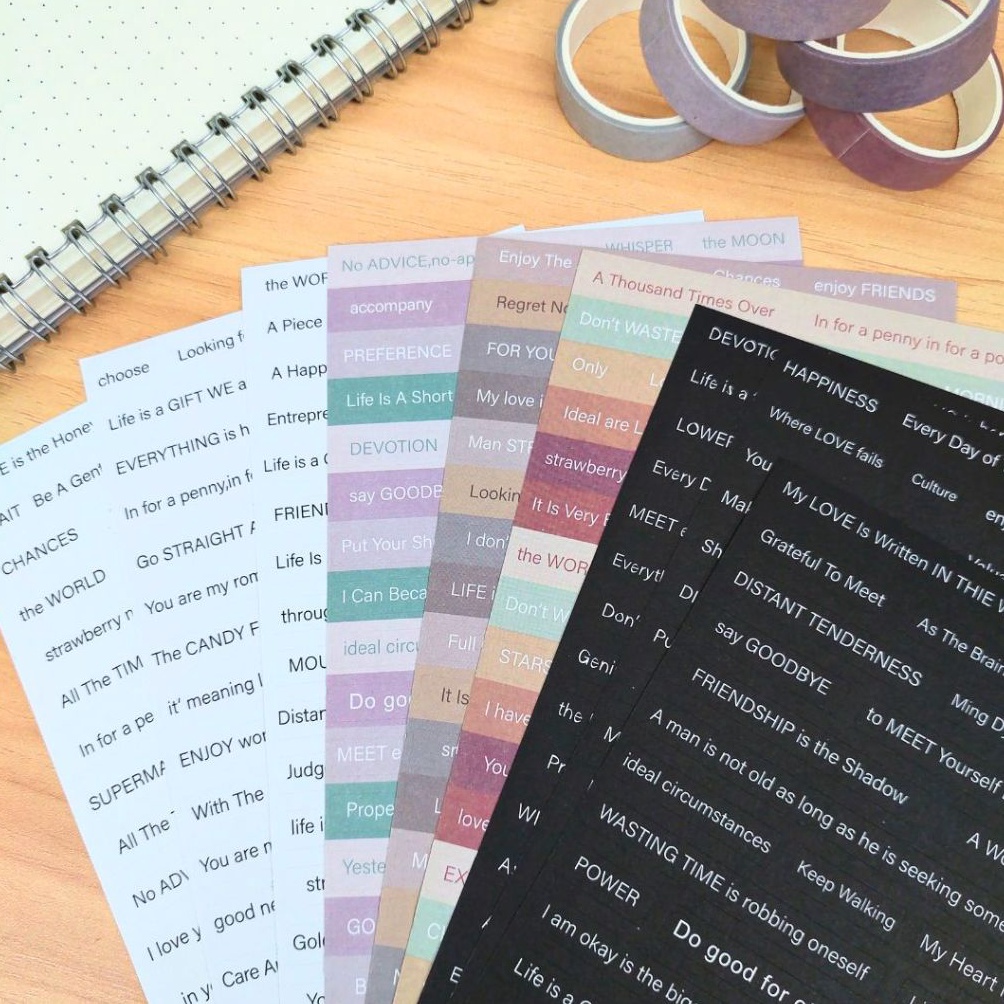 is the Hone
Be A Gen
CHANCES
the WORLD
strawberry
All The TIM
In for a pe
SUPERMA
All The
No ADV
I love y
in y
choose Looking f
Life is a GIFT WE a
EVERYTHING is h
In for a penny,in f
Go STRAIGHT
You are my rom
The CANDY F
it' meaning
ENJOY wor
With The
You are
good ne
Care A
the WOR
A Piece
A Happ
Entrepre
Life is a
FRIEN
Life Is
throug
MOU
Distan
Judg
life i
str
Gol
Yo
WHISPER the MOON
No ADVICE,no-ap
accompany
PREFERENCE
Life Is A Short
DEVOTION
say GOODB
Put Your Sh
I Can Beca
ideal circu
Do go
MEET e
Prope
Yeste
GO
B
Chances enjoy FRIENDS
Enjoy The
Regret No
FOR YOU
My love i
Man STR
Lookin
I don'
LIFE i
Full
It Is
sm
L
M
N
A Thousand Times Over In for a penny in for a po
Don't WASTE MORNI
Only Lo
Ideal are L
strawberry
It Is Very
the WOR
Don't W
STARS
I have
You
love
EX
DEVOTIO
Life is a
LOWER
Every D
MEET e
Everyt
Don'
Geni
the
Pr
WI
A
E
HAPPINESS Every Day of
Where LOVE fails Culture
You
Mal
Sh
DI
Pu
My LOVE Is Written IN THIE
Grateful To Meet As The Bran
DISTANT TENDERNESS Ming D
say GOODBYE to MEET Yourself
FRIENDSHIP is the Shadow
A man is not old as long as he is seeking som
ideal circumstances A W
WASTING TIME is robbing oneself Keep Walking
POWER My Heart
I am okay is the big Do good for
Life is a